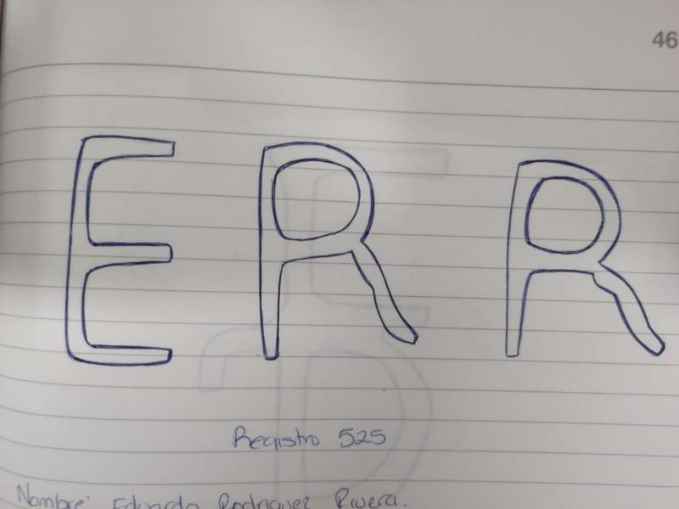 46
E R R
Registro 525
Nombre: Eduardo Rodriguez Rivera.